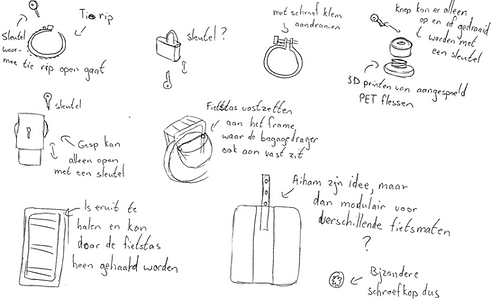 Sleutel
waar-
mee tie rip open gaat
Tie rip
sleutel?
met schroef klem
aandraaien
knop kan er alleen
op en af gedraaid
worden met
een sleutel
3D printen van aangespoeld
PET flessen
sleutel
Gesp kan
alleen open
met een sleutel
Fietstas vastzetten
aan het frame
waar de bagagedrager
ook aan vast zit
Is eruit te
halen en kan
door de fietstas
heen gehaald worden
Aiham zijn idee, maar
dan modulair voor
verschillende fietsmaten
?
Bijzondere
schroefkop dus